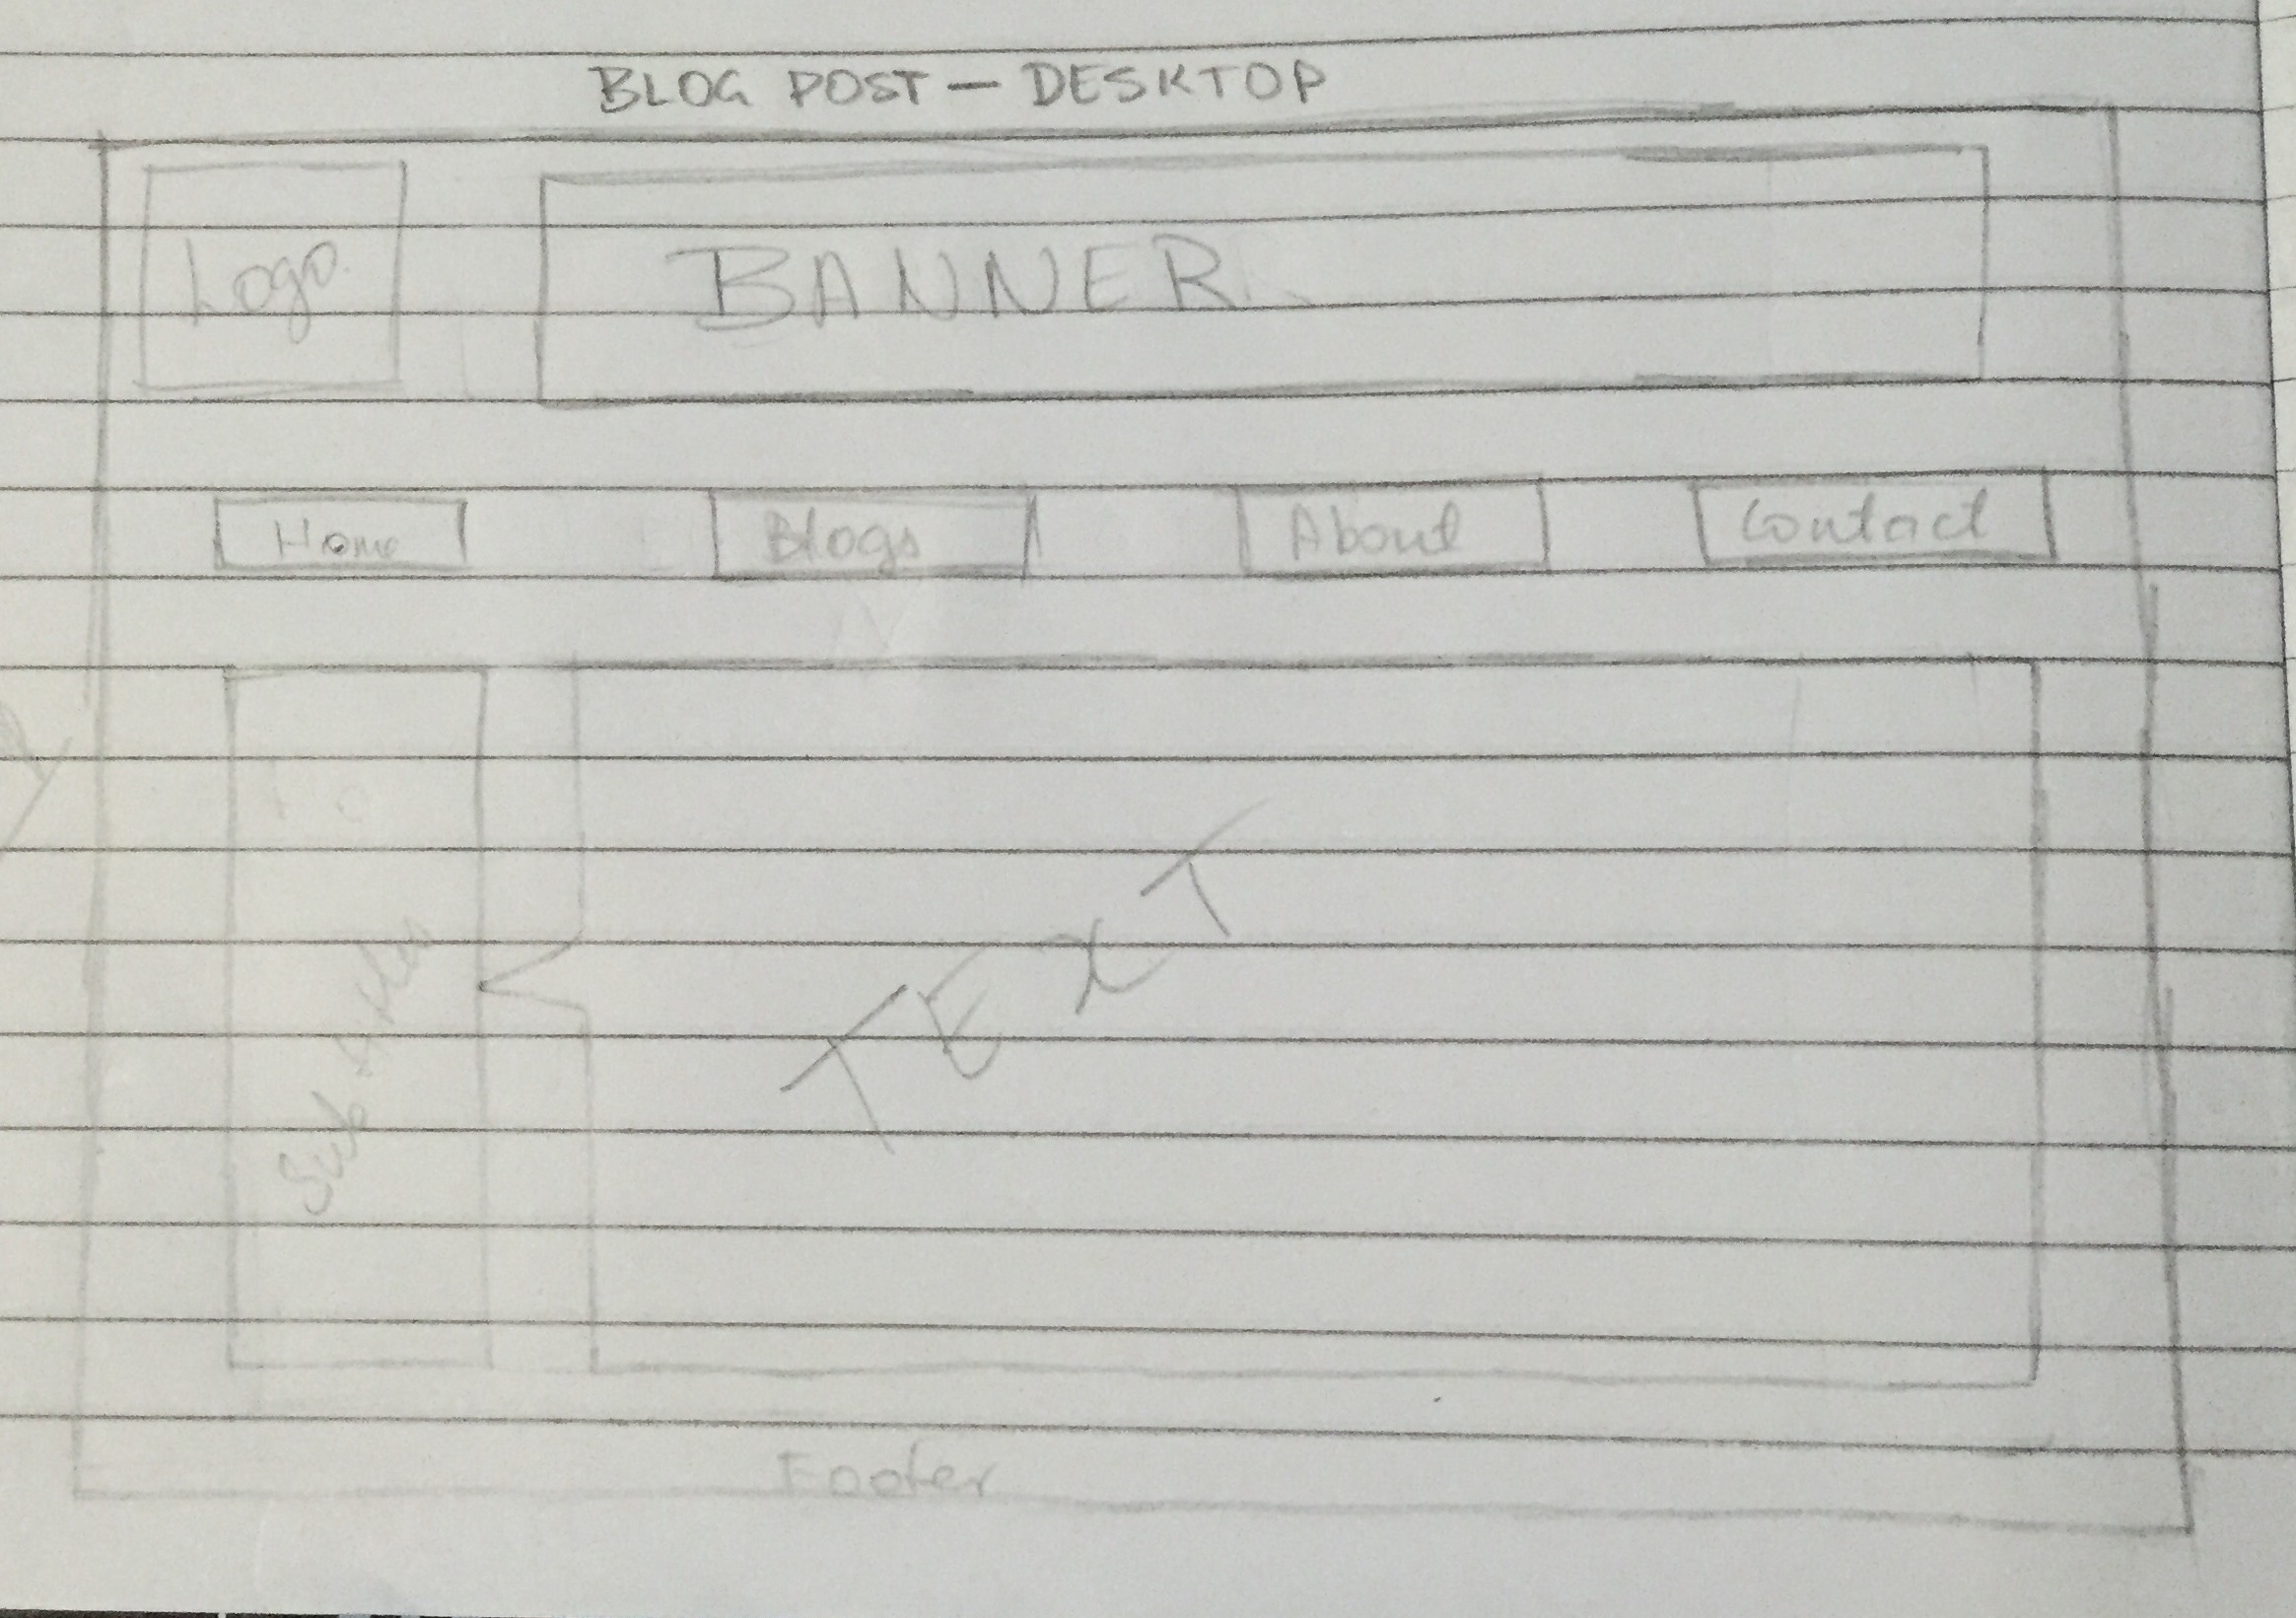 BLOG POST — DESKTOP
Logo
BANNER
Home
Blogs
About
Contact
Sub
TExT
Footer